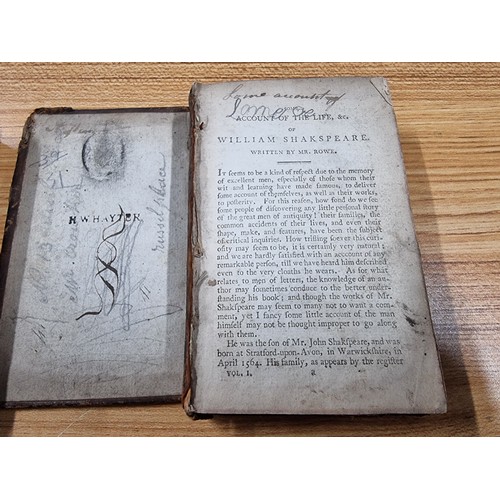 H.W.HAYTER
Russel place
Some account of
SOME
ACCOUNT OF THE LIFE, &c.
OF
WILLIAM SHAKSPEARE.
WRITTEN BY MR. ROWE.
IT seems to be a kind of respect due to the memory
of excellent men, especially of those whom their
wit and learning have made famous, to deliver
some account of themselves, as well as their works,
to posterity. For this reason, how fond do we see
some people of discovering any little personal story
of the great men of antiquity! their families, the
common accidents of their lives, and even their
shape, make, and features, have been the subject
of critical inquiries. How trifling soever this curi-
osity may seem to be, it is certainly very natural;
and we are hardly satisfied with an account of any
remarkable person, till we have heard him described
even to the very cloaths he wears. As for what
relates to men of letters, the knowledge of an au-
thor may sometimes conduce to the better under-
standing his book; and though the works of Mr.
Shakspeare may seem to many not to want a com-
ment, yet I fancy some little account of the man
himself may not be thought improper to go along
with them.
He was the son of Mr. John Shakspeare, and was
born at Stratford-upon-Avon, in Warwickshire, in
April 1564. His family, as appears by the register
VOL. I.